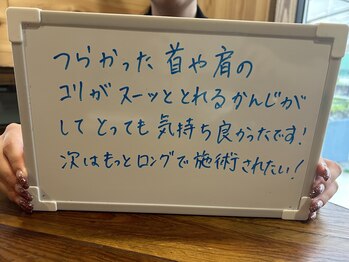 つらかった首や肩の
コリがスーッととれるかんじが
してとっても気持ち良かったです!
次はもっとロングで施術されたい!